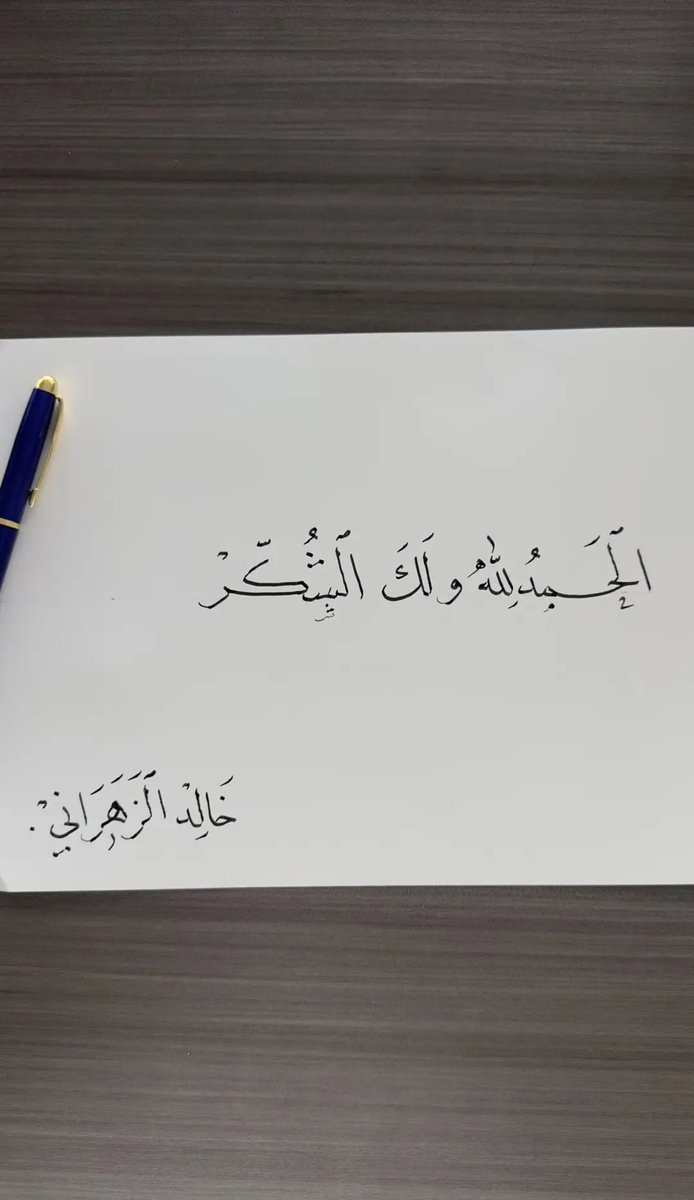 الحَمدُ لِلّٰهُ ولَكَ الشُّكرْ
خَالِدْ الزَهَرَانيْ.